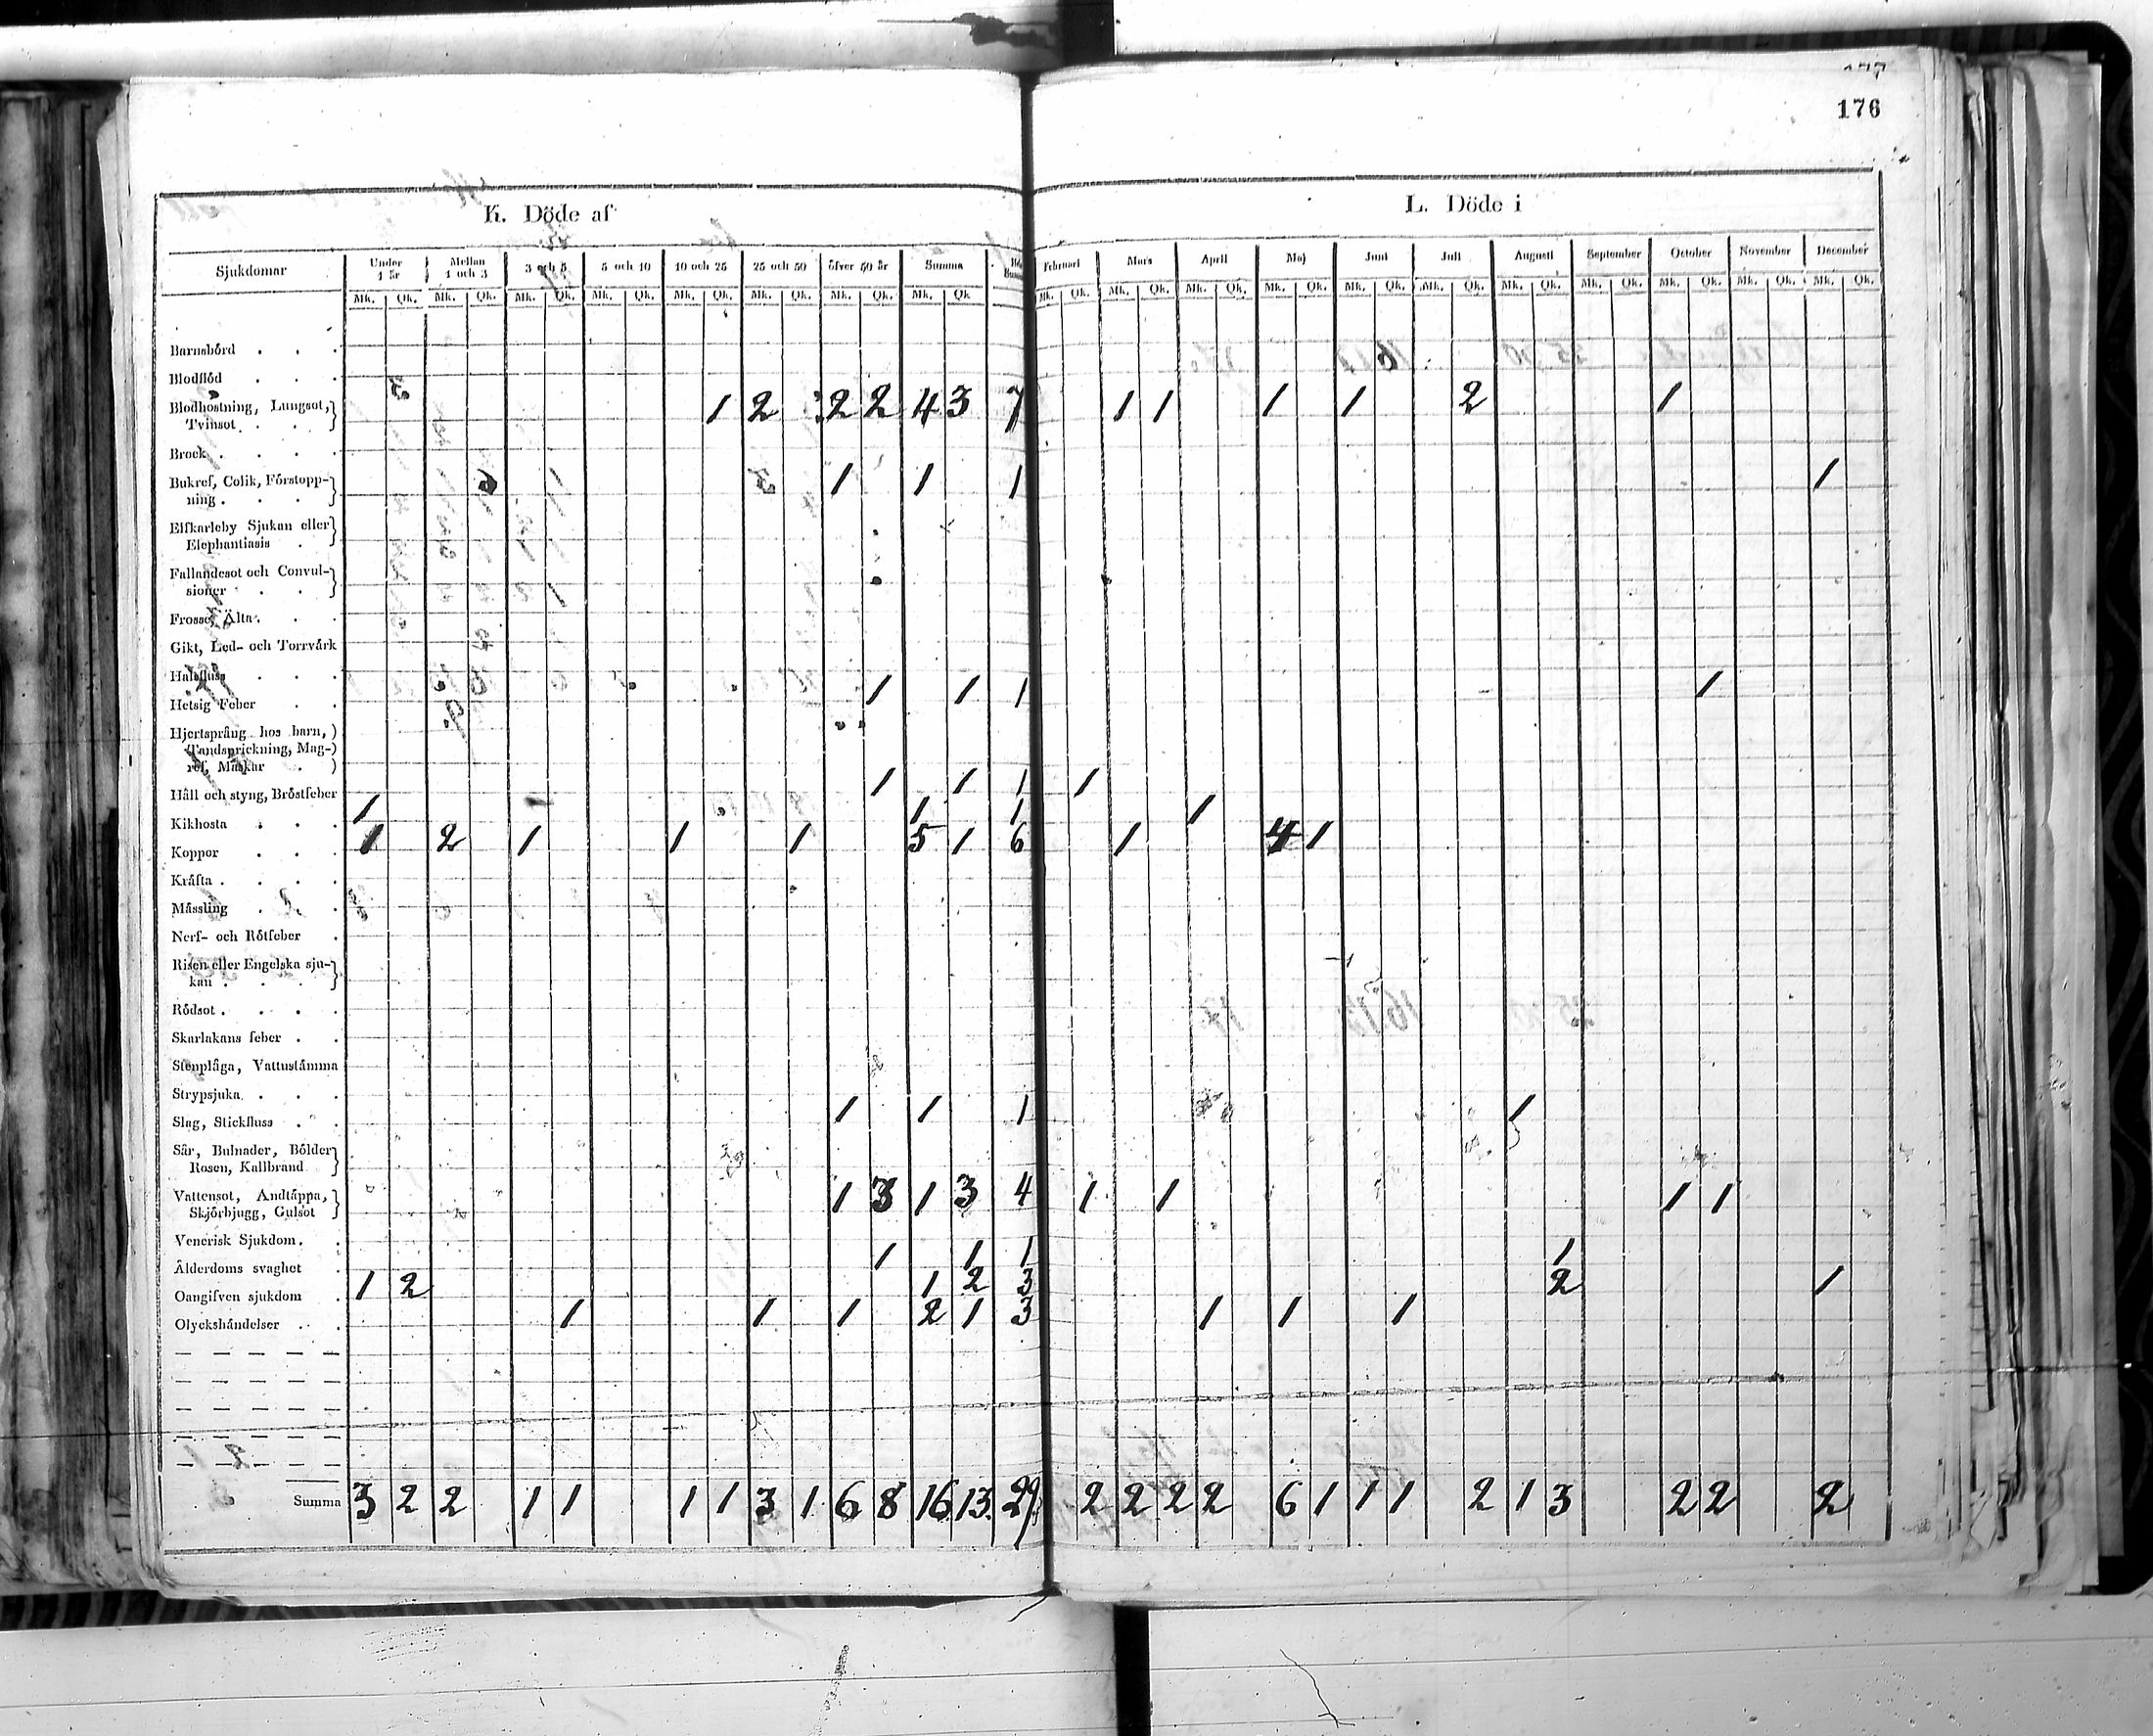 176
K. Döde af
L. Döde i
Sjukdomar Under 1 år Mellan 1 och 3 3 och 5 5 och 10 10 och 25 25 och 50 öfver 50 år Summa
Februari Mars April Maj Juni Juli Augusti September October November December
Mk. Qk. Mk. Qk. Mk. Qk. Mk. Qk. Mk. Qk. Mk. Qk. Mk. Qk. Mk. Qk
Mk. Qk. Mk. Qk. Mk. Qk. Mk. Qk. Mk. Qk. Mk. Qk. Mk. Qk. Mk. Qk. Mk. Qk. Mk. Qk. Mk. Qk.
Barnsbörd
Blodflöd
Blodhostning, Lungsot, 1 2 2 2 4 3 7 1 1 1 1 2 1
Tvinsot
Brock
Bukref, Colik, Förstopp- 1 1 1 1
ning
Elfkarleby Sjukan eller
Elephantiasis
Fallandesot och Convul-
sioner
Frossa, Älta
Gikt, Led- och Torrvärk
Halsfluss
Hetsig Feber 1 1 1 1
Hjertsprång hos barn,
Tandsprickning, Mag-
ref, Maskar
Håll och styng, Bröstfeber 1 1 1 1
Kikhosta 1 1 1 1
Koppor 1 2 1 1 1 5 1 6 1 4 1
Kräfta
Mässling
Nerf- och Rötfeber
Risen eller Engelska sju-
kan
Rödsot
Skarlakans feber
Stenplåga, Vattustämma
Strypsjuka
Slag, Stickfluss 1 1 1 1
Sår, Bulnader, Bölder
Rosen, Kallbrand
Vattensot, Andtäppa, 1 3 1 3 4 1 1 1 1
Skjörbjugg, Gulsot
Venerisk Sjukdom
Ålderdoms svaghet 1 1 1 1
Oangifven sjukdom 1 2 1 2 3 2 1
Olyckshändelser 1 1 1 2 1 3 1 1 1
Summa 3 2 2 1 1 1 1 3 1 6 8 16 13 29 2 2 2 2 6 1 1 1 2 1 3 2 2 2